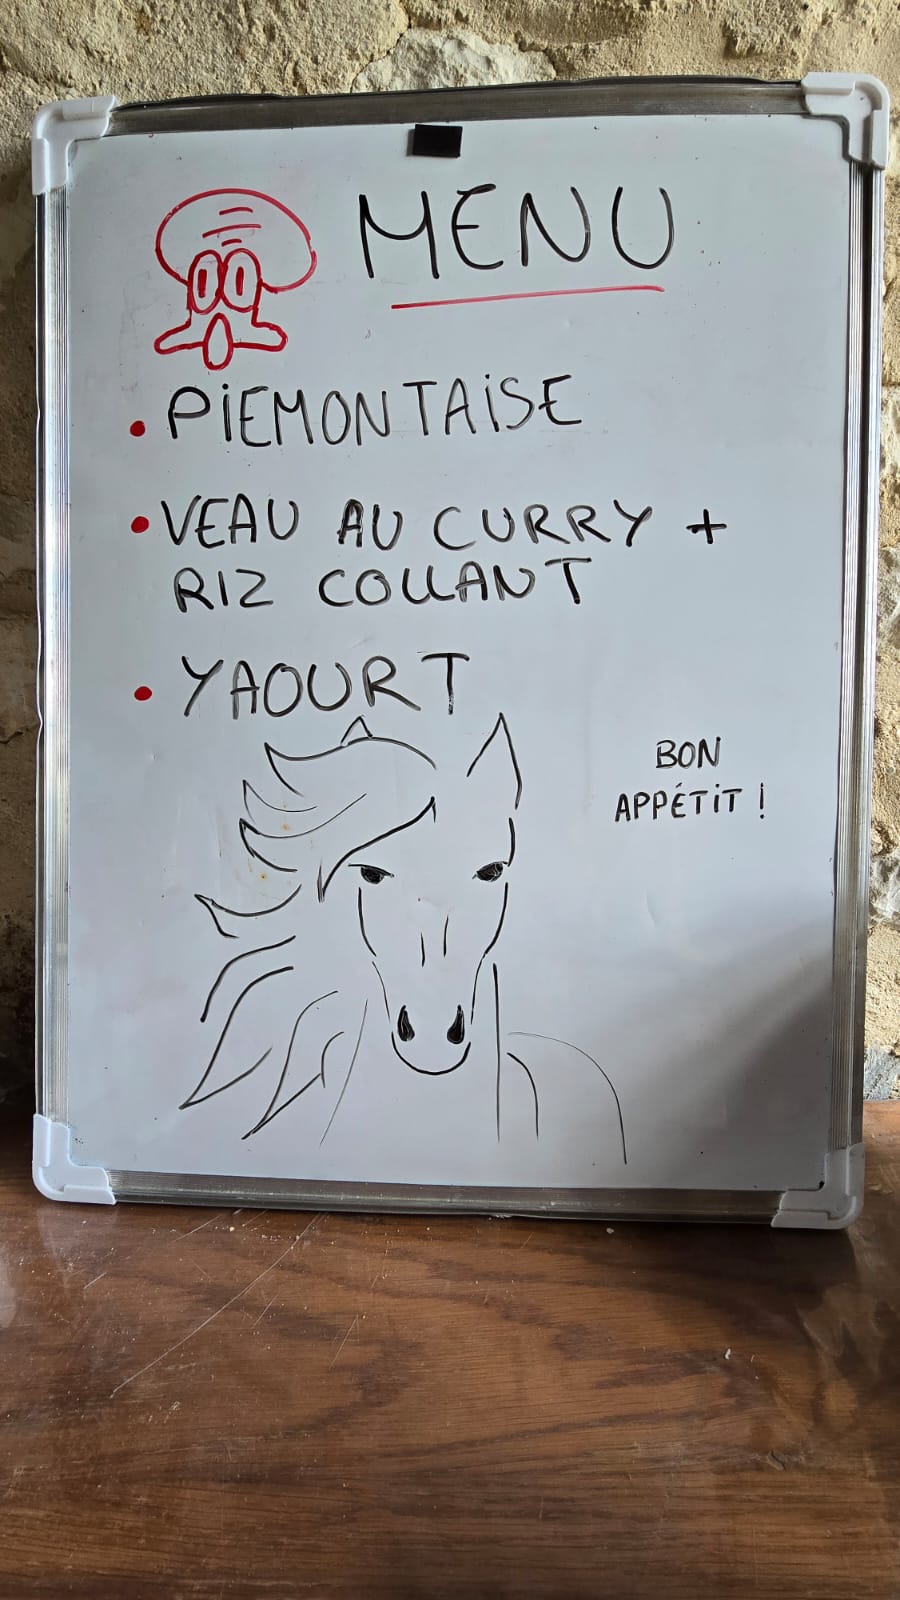 MENU
• PIEMONTAISE
• VEAU AU CURRY +
RIZ COLLANT
• YAOURT
BON
APPÉTIT !